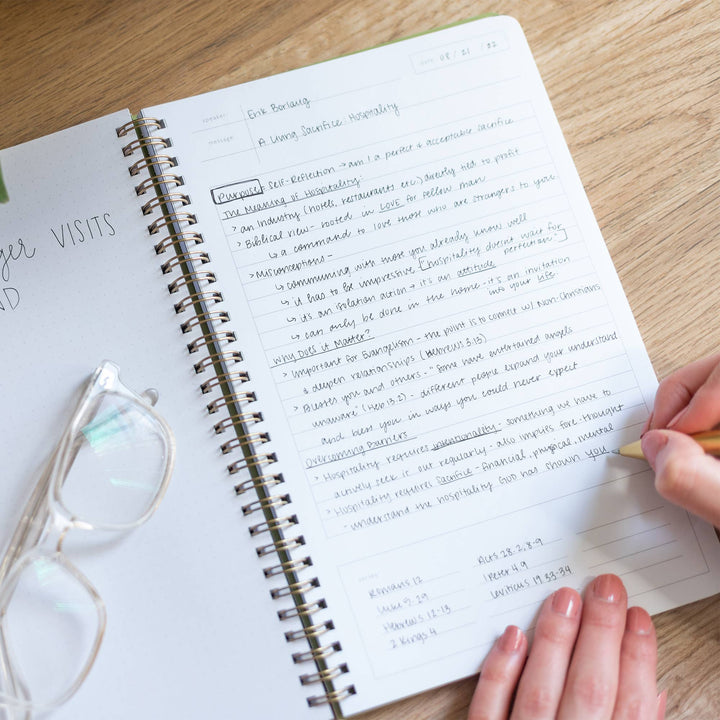 VISITS
ND
date: 08 / 21 / 22
speaker: Erik Borlaug
message: A Living Sacrifice: Hospitality
Purpose: Self-Reflection → am I a perfect & acceptable sacrifice
The Meaning of Hospitality:
> an industry (hotels, restaurants etc.) directly tied to profit
> Biblical view - rooted in LOVE for fellow man
↳ a command to love those who are strangers to you
> Misconceptions -
↳ communing with those you already know well
↳ it has to be impressive ["hospitality doesn't wait for perfection"]
↳ it's an isolation action → it's an attitude
↳ can only be done in the home - it's an invitation into your life
Why Does it Matter?
> Important for Evangelism - the point is to connect w/ Non-Christians
& deepen relationships (Hebrews 3:13)
> Blesses you and others - "some have entertained angels
unaware" (Heb 13:2) - different people expand your understand
and bless you in ways you could never expect
Overcoming Barriers
> Hospitality requires intentionality - something we have to
actively seek it out regularly - also implies fore-thought
> Hospitality requires Sacrifice - financial, physical, mental
- understand the hospitality GOD has shown you
Romans 12
Luke 5:29
Hebrews 12-13
2 Kings 4
Acts 28:2, 8-9
1 Peter 4:9
Leviticus 19:33-34